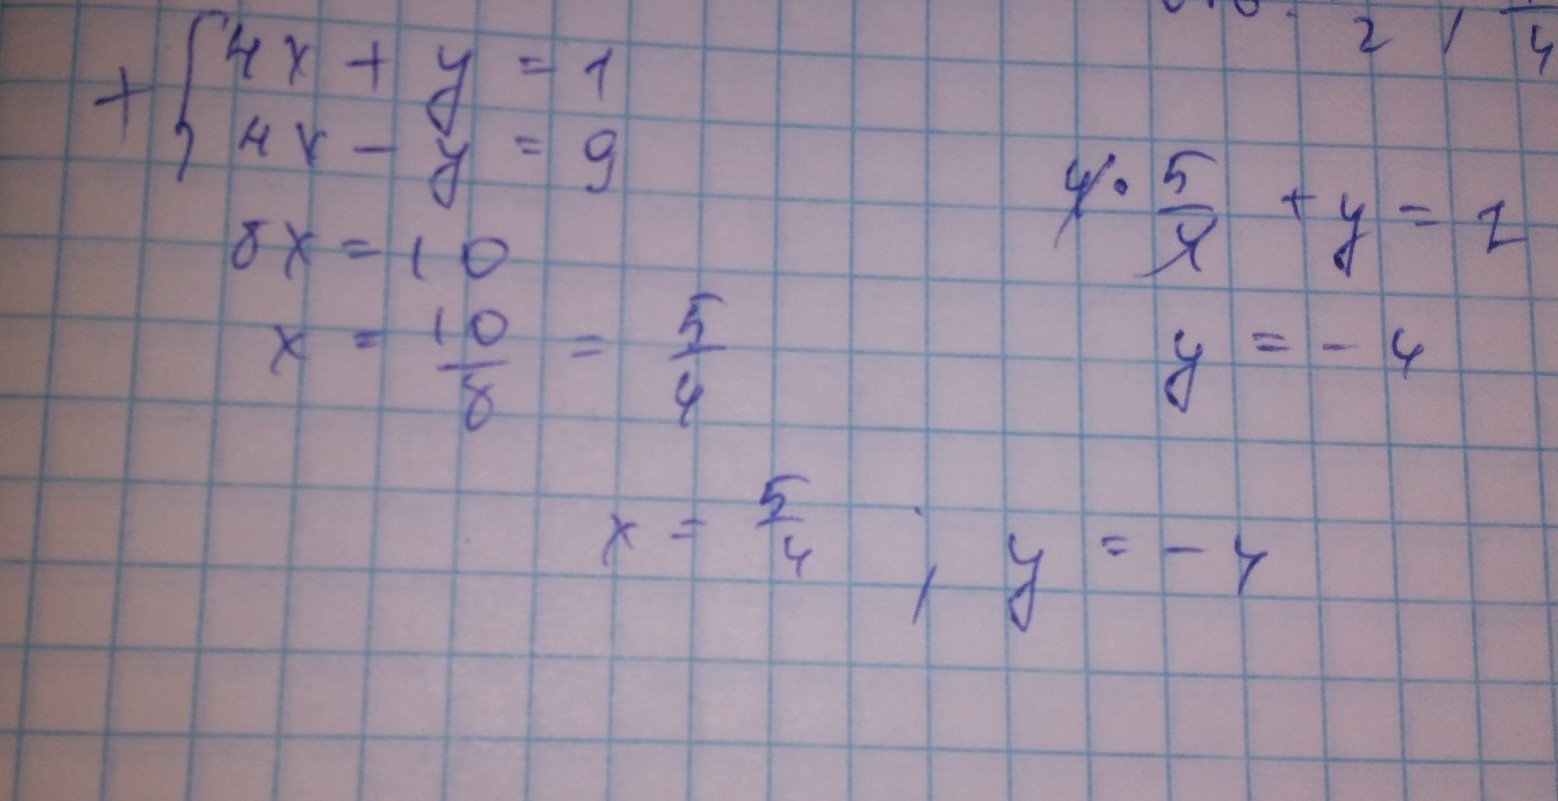 2 , 4
+ { 4x + y = 1
4x - y = 9
8x = 10
x = 10/8 = 5/4
4 · 5/4 + y = 1
y = - 4
x = 5/4 ; y = - 4